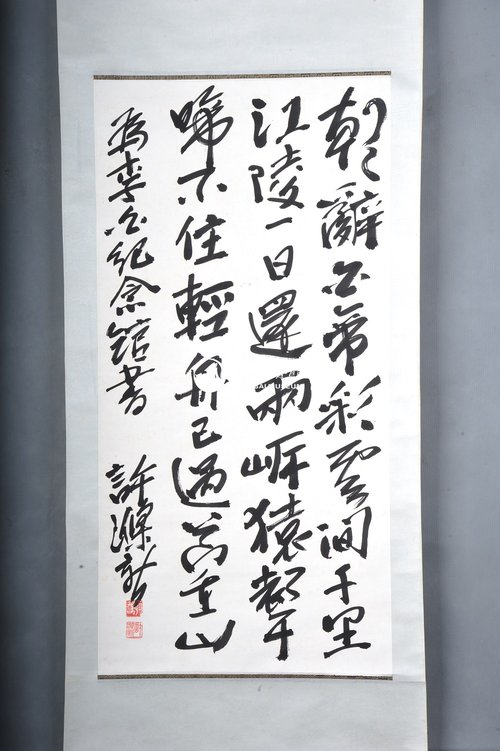 朝辭白帝彩雲间千里
江陵一日還兩岸猿聲
啼不住輕舟已過萬重山
为李白纪念館書
許滌新